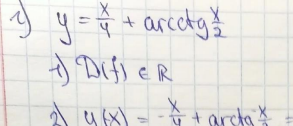 2) y = x/4 + arcctg x/2
1) D(f) ∈ R
2) y(x) = -x/4 + arcctg -x/2 =